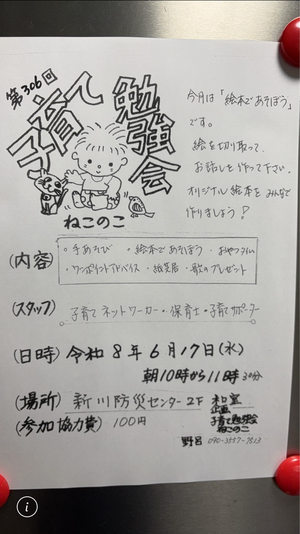 第306回
子育て
勉強会
ねこのこ
今月は「絵本であそぼう」
です。
絵を切り取って、
お話しを作って下さい。
オリジナル絵本をみんなで
作りましょう！
(内容)
・手あそび ・絵本であそぼう・おやつタイム
・ワンポイントアドバイス・紙芝居・歌のプレゼント
(スタッフ) 子育てネットワーカー・保育士・子育てサポーター
(日時) 令和8年6月17日(水)
朝10時から11時30分
(場所) 新川防災センター2F 和室
(参加協力費) 100円
企画
子育て勉強会
ねこのこ
野呂